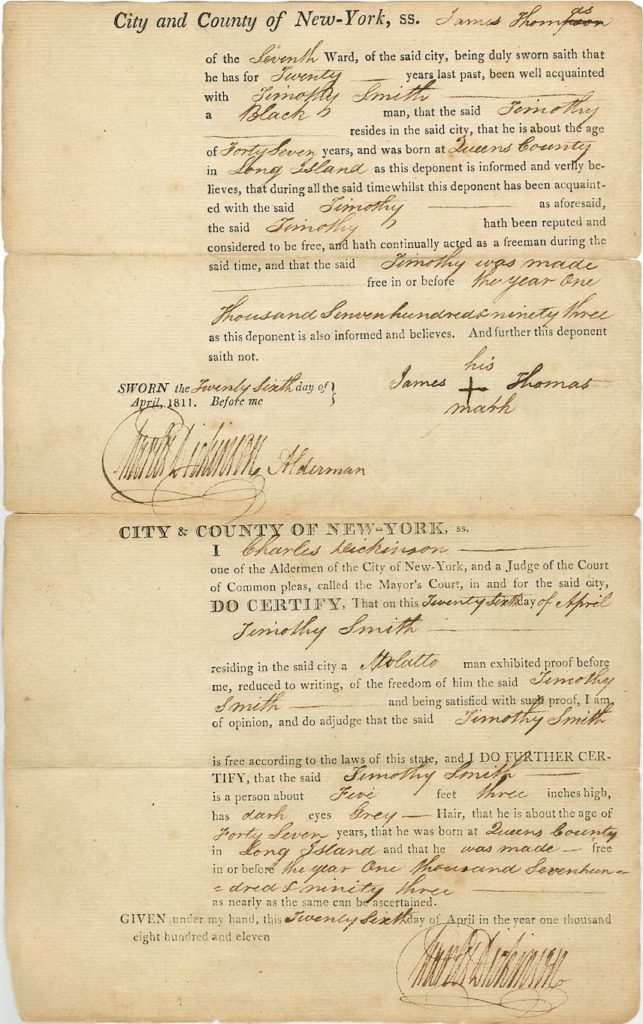 City and County of New-York, ss. James Thomas
of the Seventh Ward, of the said city, being duly sworn saith that
he has for Twenty years last past, been well acquainted
with Timothy Smith
a Black man, that the said Timothy
resides in the said city, that he is about the age
of Forty Seven years, and was born at Queens County
in Long Island as this deponent is informed and verily be-
lieves, that during all the said time whilst this deponent has been acquaint-
ed with the said Timothy as aforesaid,
the said Timothy hath been reputed and
considered to be free, and hath continually acted as a freeman during the
said time, and that the said Timothy was made
free in or before the year One
Thousand Senvenhundred & ninety three
as this deponent is also informed and believes. And further this deponent
saith not.
his
SWORN the Twenty Sixth day of } James + Thomas
April, 1811. Before me
mark
Charles Dickinson Alderman
CITY & COUNTY OF NEW-YORK, ss.
I Charles Dickinson
one of the Aldermen of the City of New-York, and a Judge of the Court
of Common pleas, called the Mayor's Court, in and for the said city,
DO CERTIFY, That on this Twenty Sixth day of April
Timothy Smith
residing in the said city a Molatto man exhibited proof before
me, reduced to writing, of the freedom of him the said Timothy
Smith and being satisfied with such proof, I am
of opinion, and do adjudge that the said Timothy Smith
is free according to the laws of this state, and I DO FURTHER CER-
TIFY, that the said Timothy Smith
is a person about Five feet three inches high,
has dark eyes Grey Hair, that he is about the age of
Forty Seven years, that he was born at Queens County
in Long Island and that he was made free
in or before the year One thousand Sevenhun=
=dred & ninety three
as nearly as the same can be ascertained.
GIVEN under my hand, this Twenty Sixth day of April in the year one thousand
eight hundred and eleven
Charles Dickinson